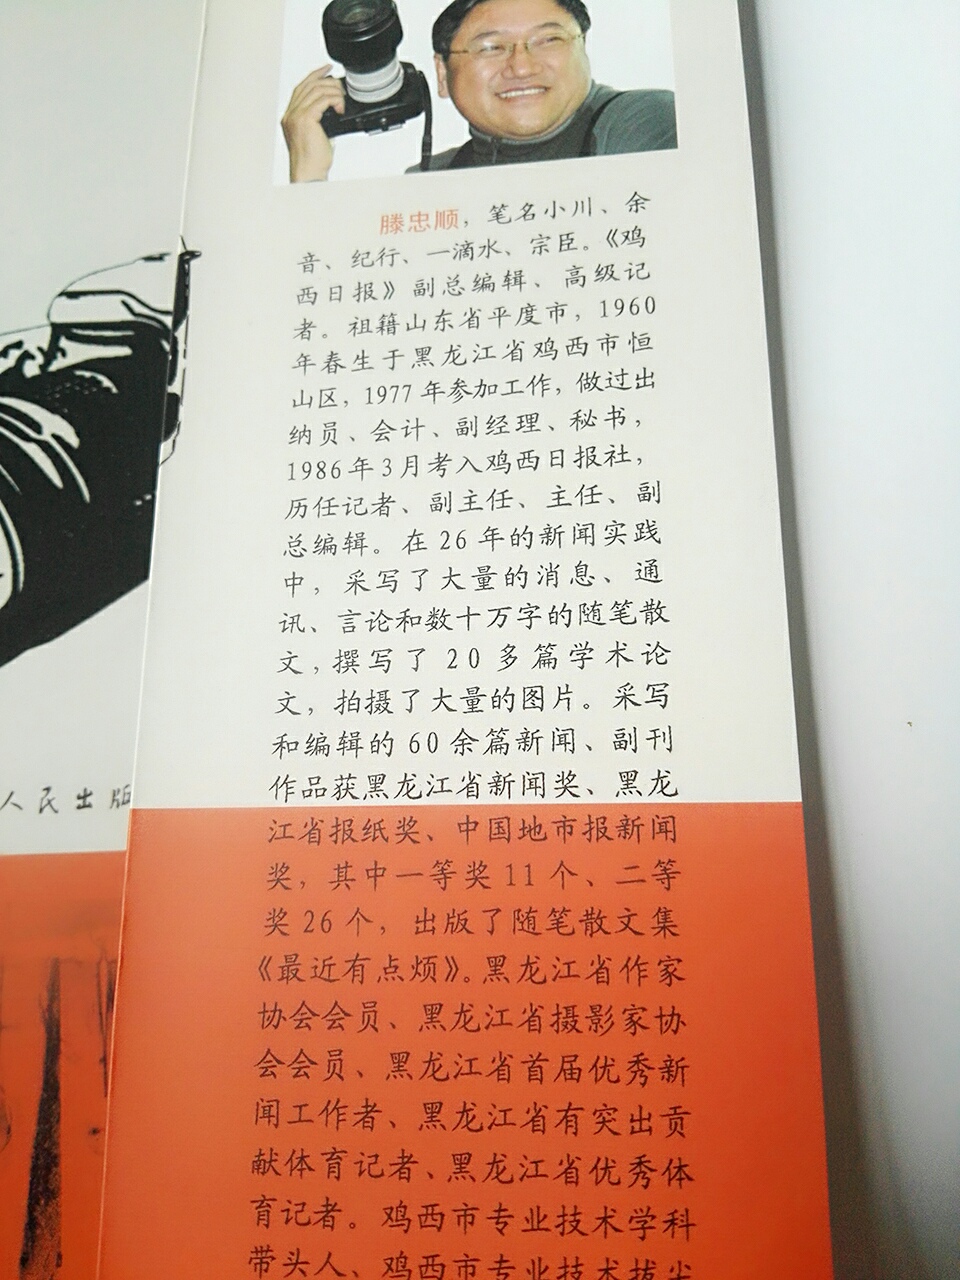 滕忠顺，笔名小川、余
音、纪行、一滴水、宗臣。《鸡
西日报》副总编辑、高级记
者。祖籍山东省平度市，1960
年春生于黑龙江省鸡西市恒
山区，1977年参加工作，做过出
纳员、会计、副经理、秘书，
1986年3月考入鸡西日报社，
历任记者、副主任、主任、副
总编辑。在26年的新闻实践
中，采写了大量的消息、通
讯、言论和数十万字的随笔散
文，撰写了20多篇学术论
文，拍摄了大量的图片。采写
和编辑的60余篇新闻、副刊
作品获黑龙江省新闻奖、黑龙
江省报纸奖、中国地市报新闻
奖，其中一等奖11个、二等
奖26个，出版了随笔散文集
《最近有点烦》。黑龙江省作家
协会会员、黑龙江省摄影家协
会会员、黑龙江省首届优秀新
闻工作者、黑龙江省有突出贡
献体育记者、黑龙江省优秀体
育记者。鸡西市专业技术学科
带头人、鸡西市专业技术拔尖
人民出版